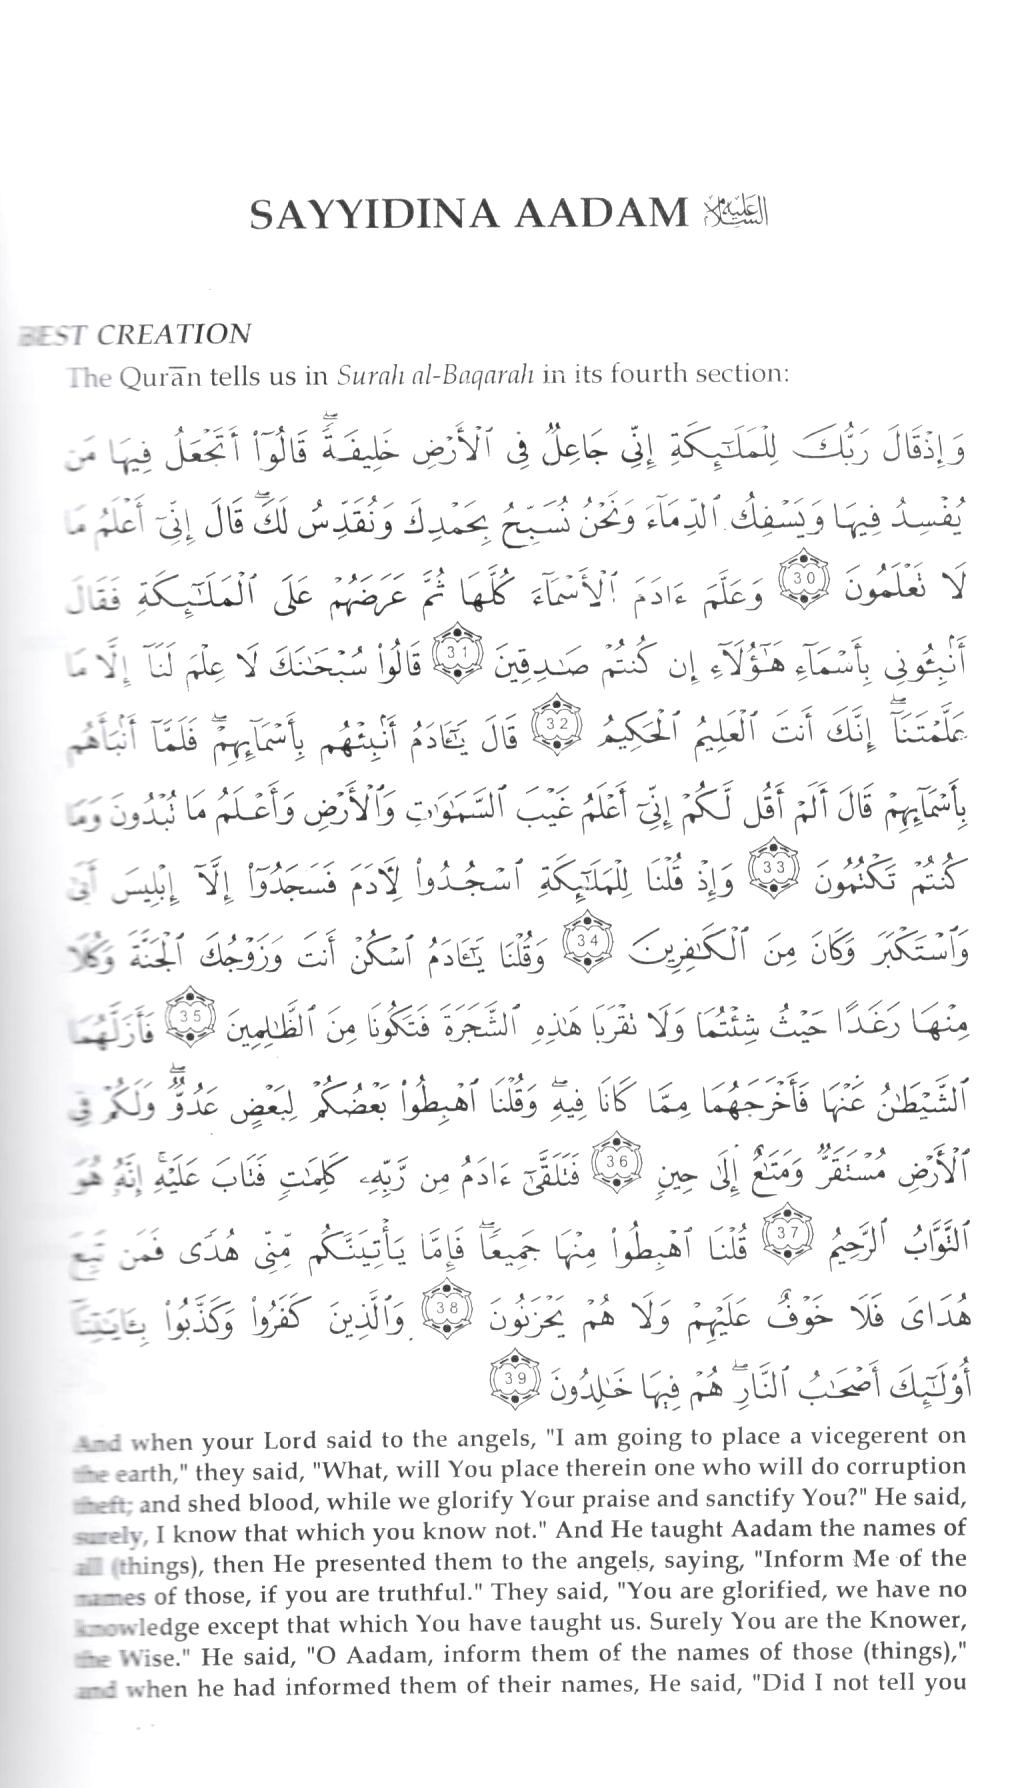 SAYYIDINA AADAM عليه السلام
BEST CREATION
The Qurān tells us in Surah al-Baqarah in its fourth section:
وَإِذْ قَالَ رَبُّكَ لِلْمَلَـٰٓئِكَةِ إِنِّى جَاعِلٌ فِى ٱلْأَرْضِ خَلِيفَةً ۖ قَالُوٓا۟ أَتَجْعَلُ فِيهَا مَن
يُفْسِدُ فِيهَا وَيَسْفِكُ ٱلدِّمَآءَ وَنَحْنُ نُسَبِّحُ بِحَمْدِكَ وَنُقَدِّسُ لَكَ ۖ قَالَ إِنِّىٓ أَعْلَمُ مَا
لَا تَعْلَمُونَ 30 وَعَلَّمَ ءَادَمَ ٱلْأَسْمَآءَ كُلَّهَا ثُمَّ عَرَضَهُمْ عَلَى ٱلْمَلَـٰٓئِكَةِ فَقَالَ
أَنۢبِـُٔونِى بِأَسْمَآءِ هَـٰٓؤُلَآءِ إِن كُنتُمْ صَـٰدِقِينَ 31 قَالُوا۟ سُبْحَـٰنَكَ لَا عِلْمَ لَنَآ إِلَّا مَا
عَلَّمْتَنَآ ۖ إِنَّكَ أَنتَ ٱلْعَلِيمُ ٱلْحَكِيمُ 32 قَالَ يَـٰٓـَٔادَمُ أَنۢبِئْهُم بِأَسْمَآئِهِمْ ۖ فَلَمَّآ أَنۢبَأَهُم
بِأَسْمَآئِهِمْ قَالَ أَلَمْ أَقُل لَّكُمْ إِنِّىٓ أَعْلَمُ غَيْبَ ٱلسَّمَـٰوَٰتِ وَٱلْأَرْضِ وَأَعْلَمُ مَا تُبْدُونَ وَمَا
كُنتُمْ تَكْتُمُونَ 33 وَإِذْ قُلْنَا لِلْمَلَـٰٓئِكَةِ ٱسْجُدُوا۟ لِـَٔادَمَ فَسَجَدُوٓا۟ إِلَّآ إِبْلِيسَ أَبَىٰ
وَٱسْتَكْبَرَ وَكَانَ مِنَ ٱلْكَـٰفِرِينَ 34 وَقُلْنَا يَـٰٓـَٔادَمُ ٱسْكُنْ أَنتَ وَزَوْجُكَ ٱلْجَنَّةَ وَكُلَا
مِنْهَا رَغَدًا حَيْثُ شِئْتُمَا وَلَا تَقْرَبَا هَـٰذِهِ ٱلشَّجَرَةَ فَتَكُونَا مِنَ ٱلظَّـٰلِمِينَ 35 فَأَزَلَّهُمَا
ٱلشَّيْطَـٰنُ عَنْهَا فَأَخْرَجَهُمَا مِمَّا كَانَا فِيهِ ۖ وَقُلْنَا ٱهْبِطُوا۟ بَعْضُكُمْ لِبَعْضٍ عَدُوٌّ ۖ وَلَكُمْ فِى
ٱلْأَرْضِ مُسْتَقَرٌّ وَمَتَـٰعٌ إِلَىٰ حِينٍ 36 فَتَلَقَّىٰٓ ءَادَمُ مِن رَّبِّهِۦ كَلِمَـٰتٍ فَتَابَ عَلَيْهِ ۚ إِنَّهُۥ هُوَ
ٱلتَّوَّابُ ٱلرَّحِيمُ 37 قُلْنَا ٱهْبِطُوا۟ مِنْهَا جَمِيعًا ۖ فَإِمَّا يَأْتِيَنَّكُم مِّنِّى هُدًى فَمَن تَبِعَ
هُدَاىَ فَلَا خَوْفٌ عَلَيْهِمْ وَلَا هُمْ يَحْزَنُونَ 38 وَٱلَّذِينَ كَفَرُوا۟ وَكَذَّبُوا۟ بِـَٔايَـٰتِنَآ
أُو۟لَـٰٓئِكَ أَصْحَـٰبُ ٱلنَّارِ ۖ هُمْ فِيهَا خَـٰلِدُونَ 39
And when your Lord said to the angels, "I am going to place a vicegerent on
the earth," they said, "What, will You place therein one who will do corruption
theft; and shed blood, while we glorify Your praise and sanctify You?" He said,
surely, I know that which you know not." And He taught Aadam the names of
all (things), then He presented them to the angels, saying, "Inform Me of the
names of those, if you are truthful." They said, "You are glorified, we have no
knowledge except that which You have taught us. Surely You are the Knower,
the Wise." He said, "O Aadam, inform them of the names of those (things),"
and when he had informed them of their names, He said, "Did I not tell you